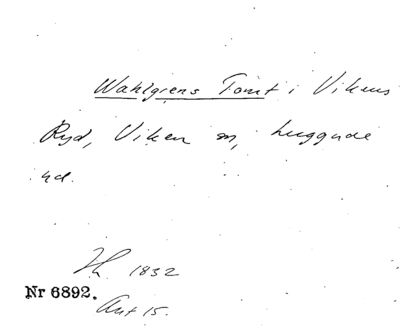 Wahlgrens Tomt i Vikens
Ryd, Viken m, huggude
ud.
Th 1832
Nr 6892.
Aut 15.